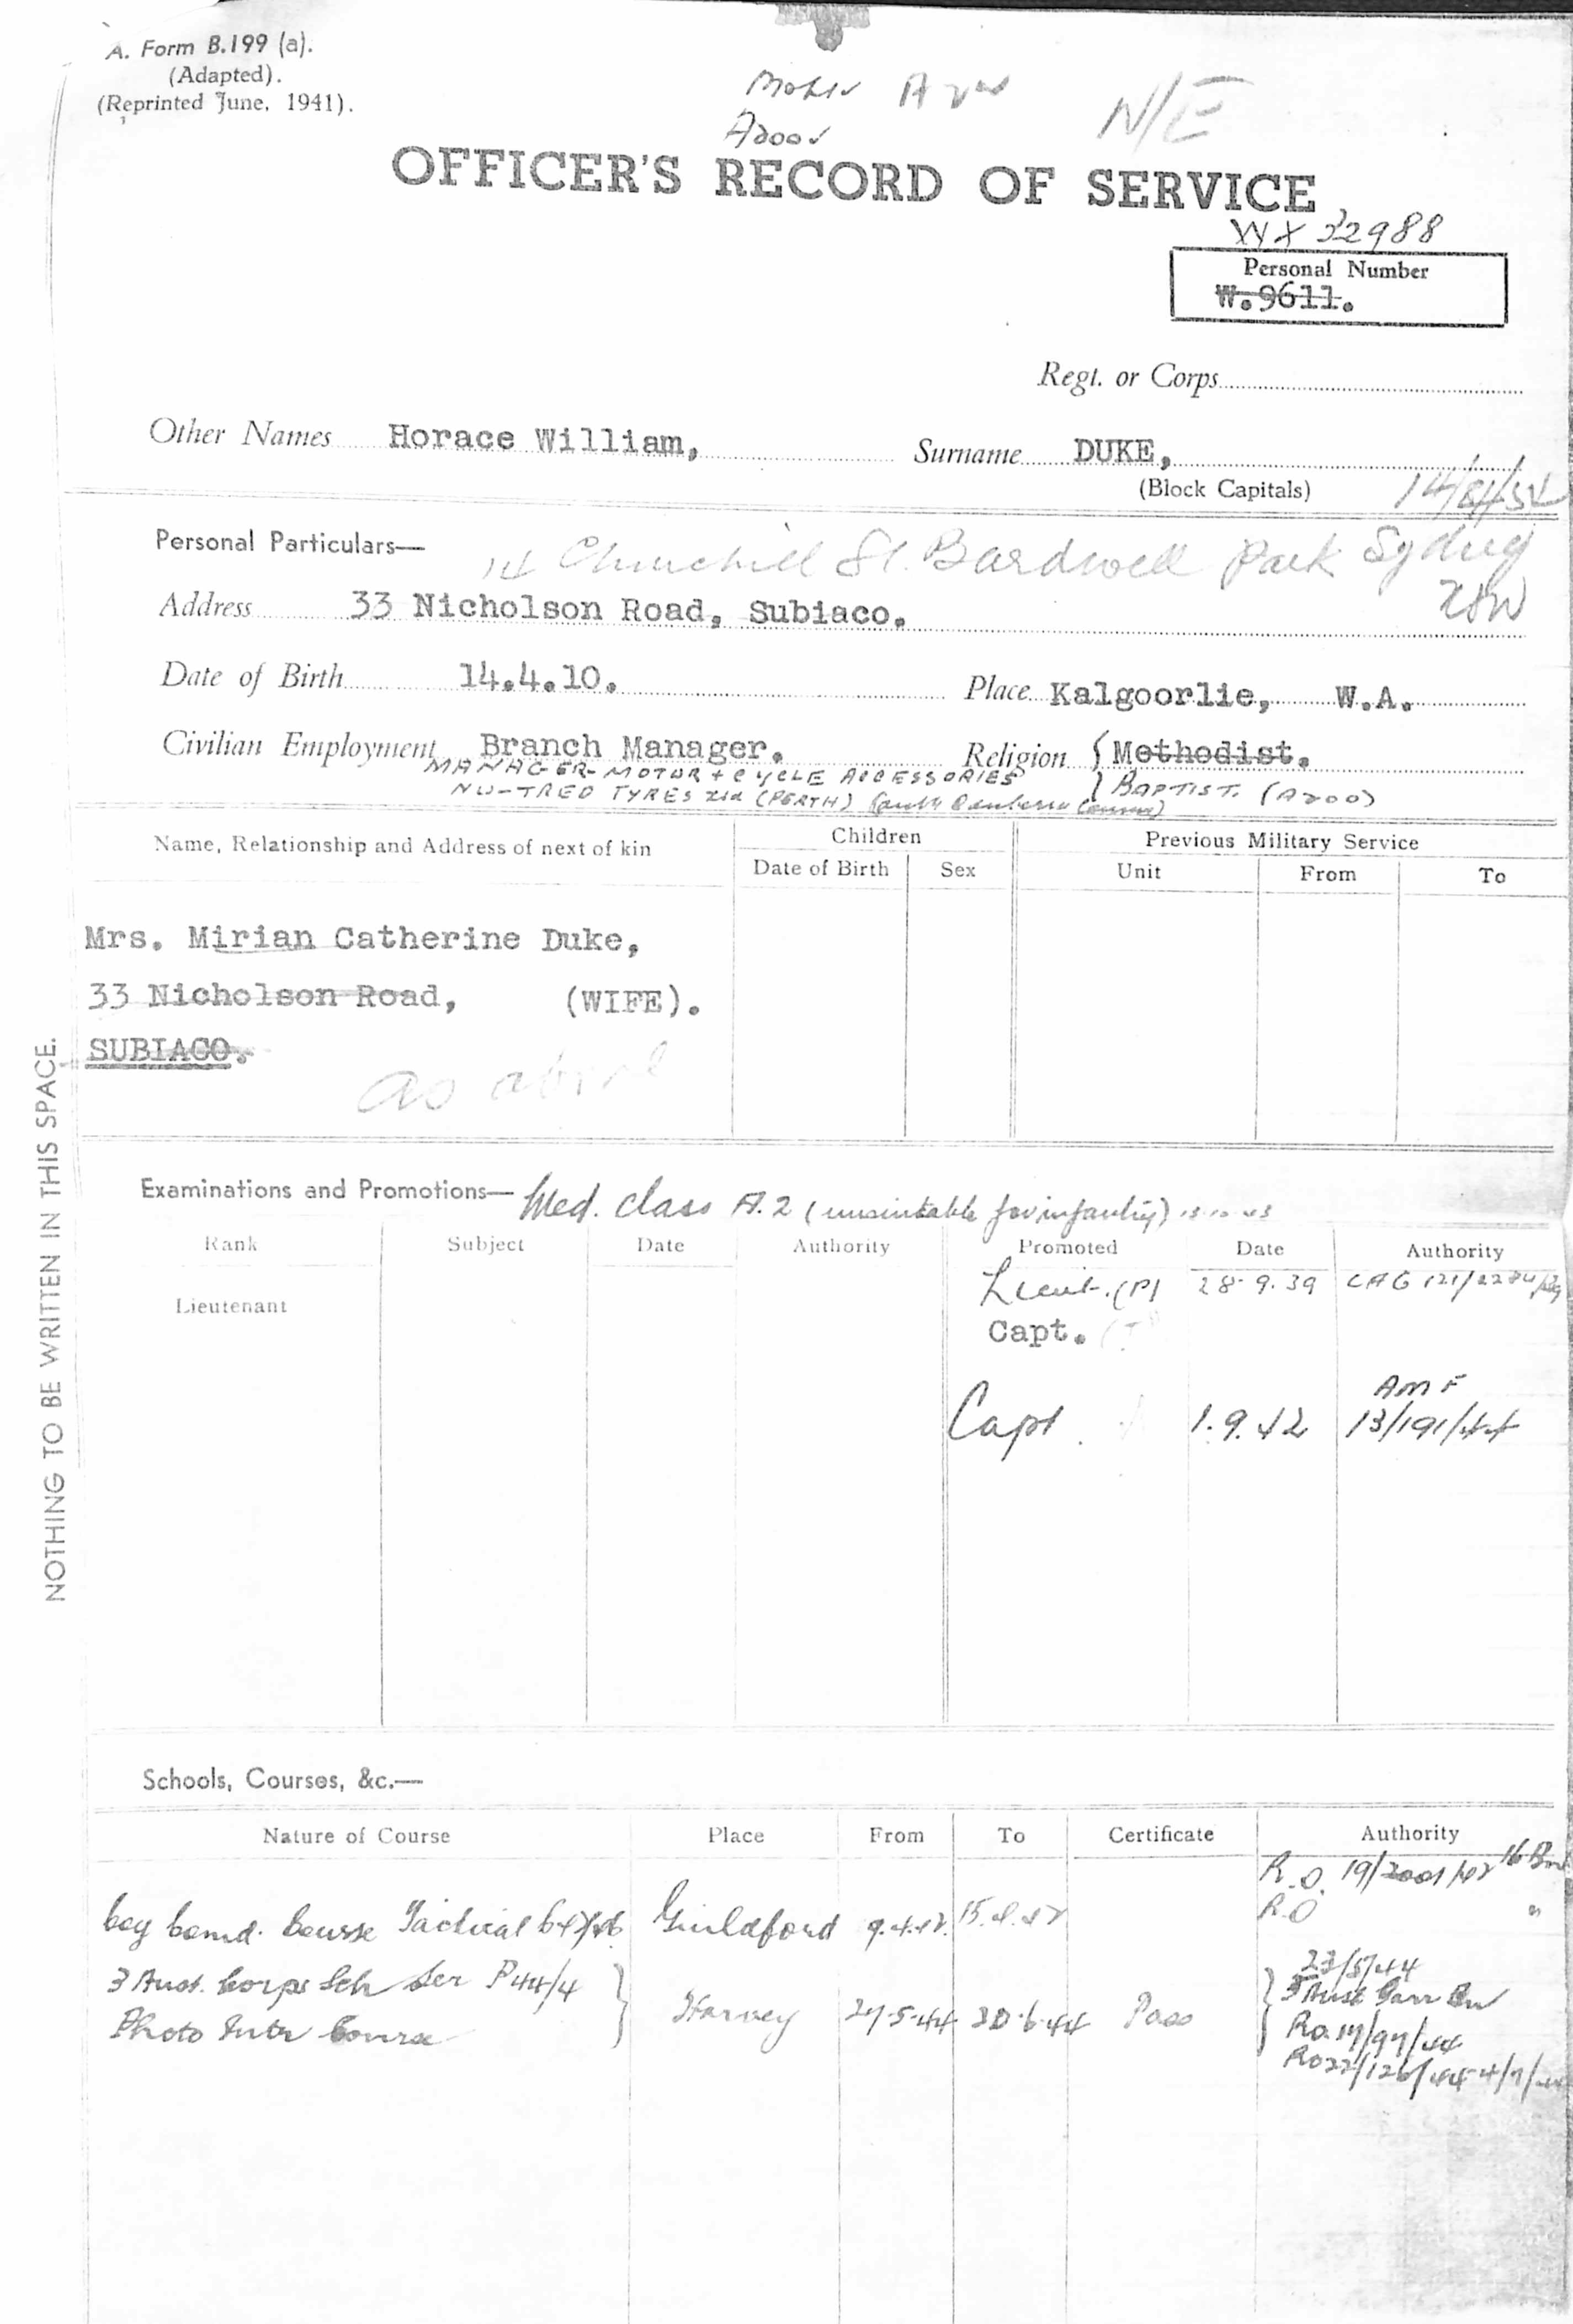 A. Form B.199 (a).
(Adapted).
(Reprinted June, 1941).
N/E
OFFICER'S RECORD OF SERVICE
WX 32988
Personal Number
W.9611.
Regt. or Corps
Other Names Horace William, Surname DUKE,
(Block Capitals)
Personal Particulars—
14 Churchill St. Bardwell Park Sydney
NSW
Address 33 Nicholson Road, Subiaco.
Date of Birth 14.4.10. Place Kalgoorlie, W.A.
Civilian Employment Branch Manager. Religion Methodist.
MANAGER-MOTOR + CYCLE ACCESSORIES BAPTIST. (A200)
NU-TRED TYRES (PERTH)
Name, Relationship and Address of next of kin Children Previous Military Service
Date of Birth Sex Unit From To
Mrs. Mirian Catherine Duke,
33 Nicholson Road, (WIFE).
SUBIACO.
as above
NOTHING TO BE WRITTEN IN THIS SPACE.
Examinations and Promotions— Med. class A.2 (unsuitable for infantry)
Rank Subject Date Authority Promoted Date Authority
Lieut. (P) 28.9.39
Lieutenant
Capt. (T)
AMF
Capt. 1.9.42 13/191/44
Schools, Courses, &c.—
Nature of Course Place From To Certificate Authority
R.O.
Coy Comd. Course Tactical Guildford 9.4.42. 15.4.42 R.O "
23/5/44
3 Aust. Corps Sch Ser P44/4 3 Aust Garr Bn
Photo Intr Course Harvey 27-5-44 30-6-44 Pass RO 17/97/44
RO 22/126/44